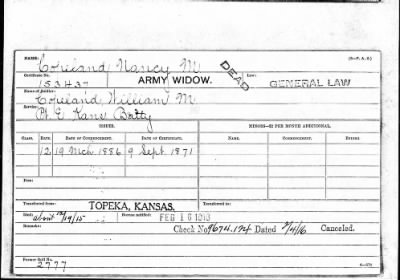 NAME: Copeland, Nancy M (3-P. A. 2.)
Certificate No. ARMY WIDOW. DEAD Law:
153437 GENERAL LAW
Name of Soldier:
Copeland, William M
Service:
Pt. E Kans Batty
ISSUES. MINORS—$2 PER MONTH ADDITIONAL.
CLASS. RATE. DATE OF COMMENCEMENT. DATE OF CERTIFICATE. NAME. COMMENCING. ENDING.
12 19 Mch 1886 9 Sept. 1871
From:
Transferred from: TOPEKA, KANSAS. Transferred to:
Died: about Bureau notified: FEB 16
Remarks: Check No. Dated Canceled.
Former Roll No.
2777